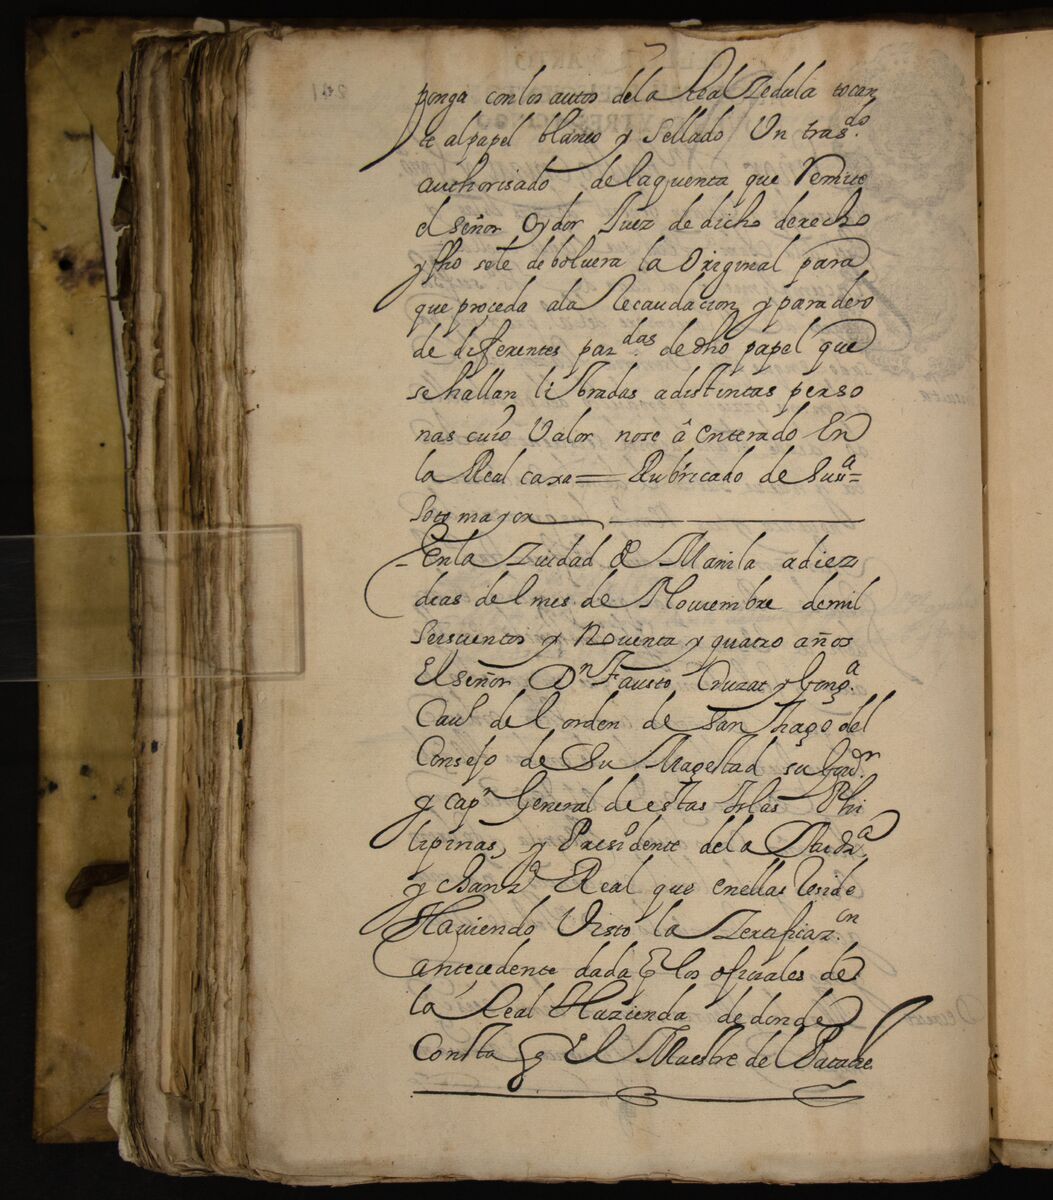 ponga con los autos de la Real Zedula tocan
te al papel blanco y sellado Un tras.do
authorisado de la quenta que Remite
el señor Oydor Juez de dicho derecho
y fho se le debolvera la Original para
que proceda a la Recaudacion y paradero
de diferentes par.das de dho papel que
se hallan libradas a distintas perso
nas cuio Valor no se â enterado En
la Real caxa = Rubricado de Su s.a =
Sotomayor
En la Ziudad de Manila a diez
dias del mes de Noviembre de mil
seiscientos y Noventa y quatro años
El señor D.n Fausto Cruzat y Gong.a
Cavl. del orden de San thiago del
Consejo de Su Magestad su Gov.or
y cap.n General de estas Islas Phi
lipinas, y Presidente de la Aud.a
y chanz.a Real que en ellas reside
Haviendo Visto la Zertificaz.on
antecedente dada por los oficiales de
la Real Hazienda de donde
Consta q El Maestre del Patache